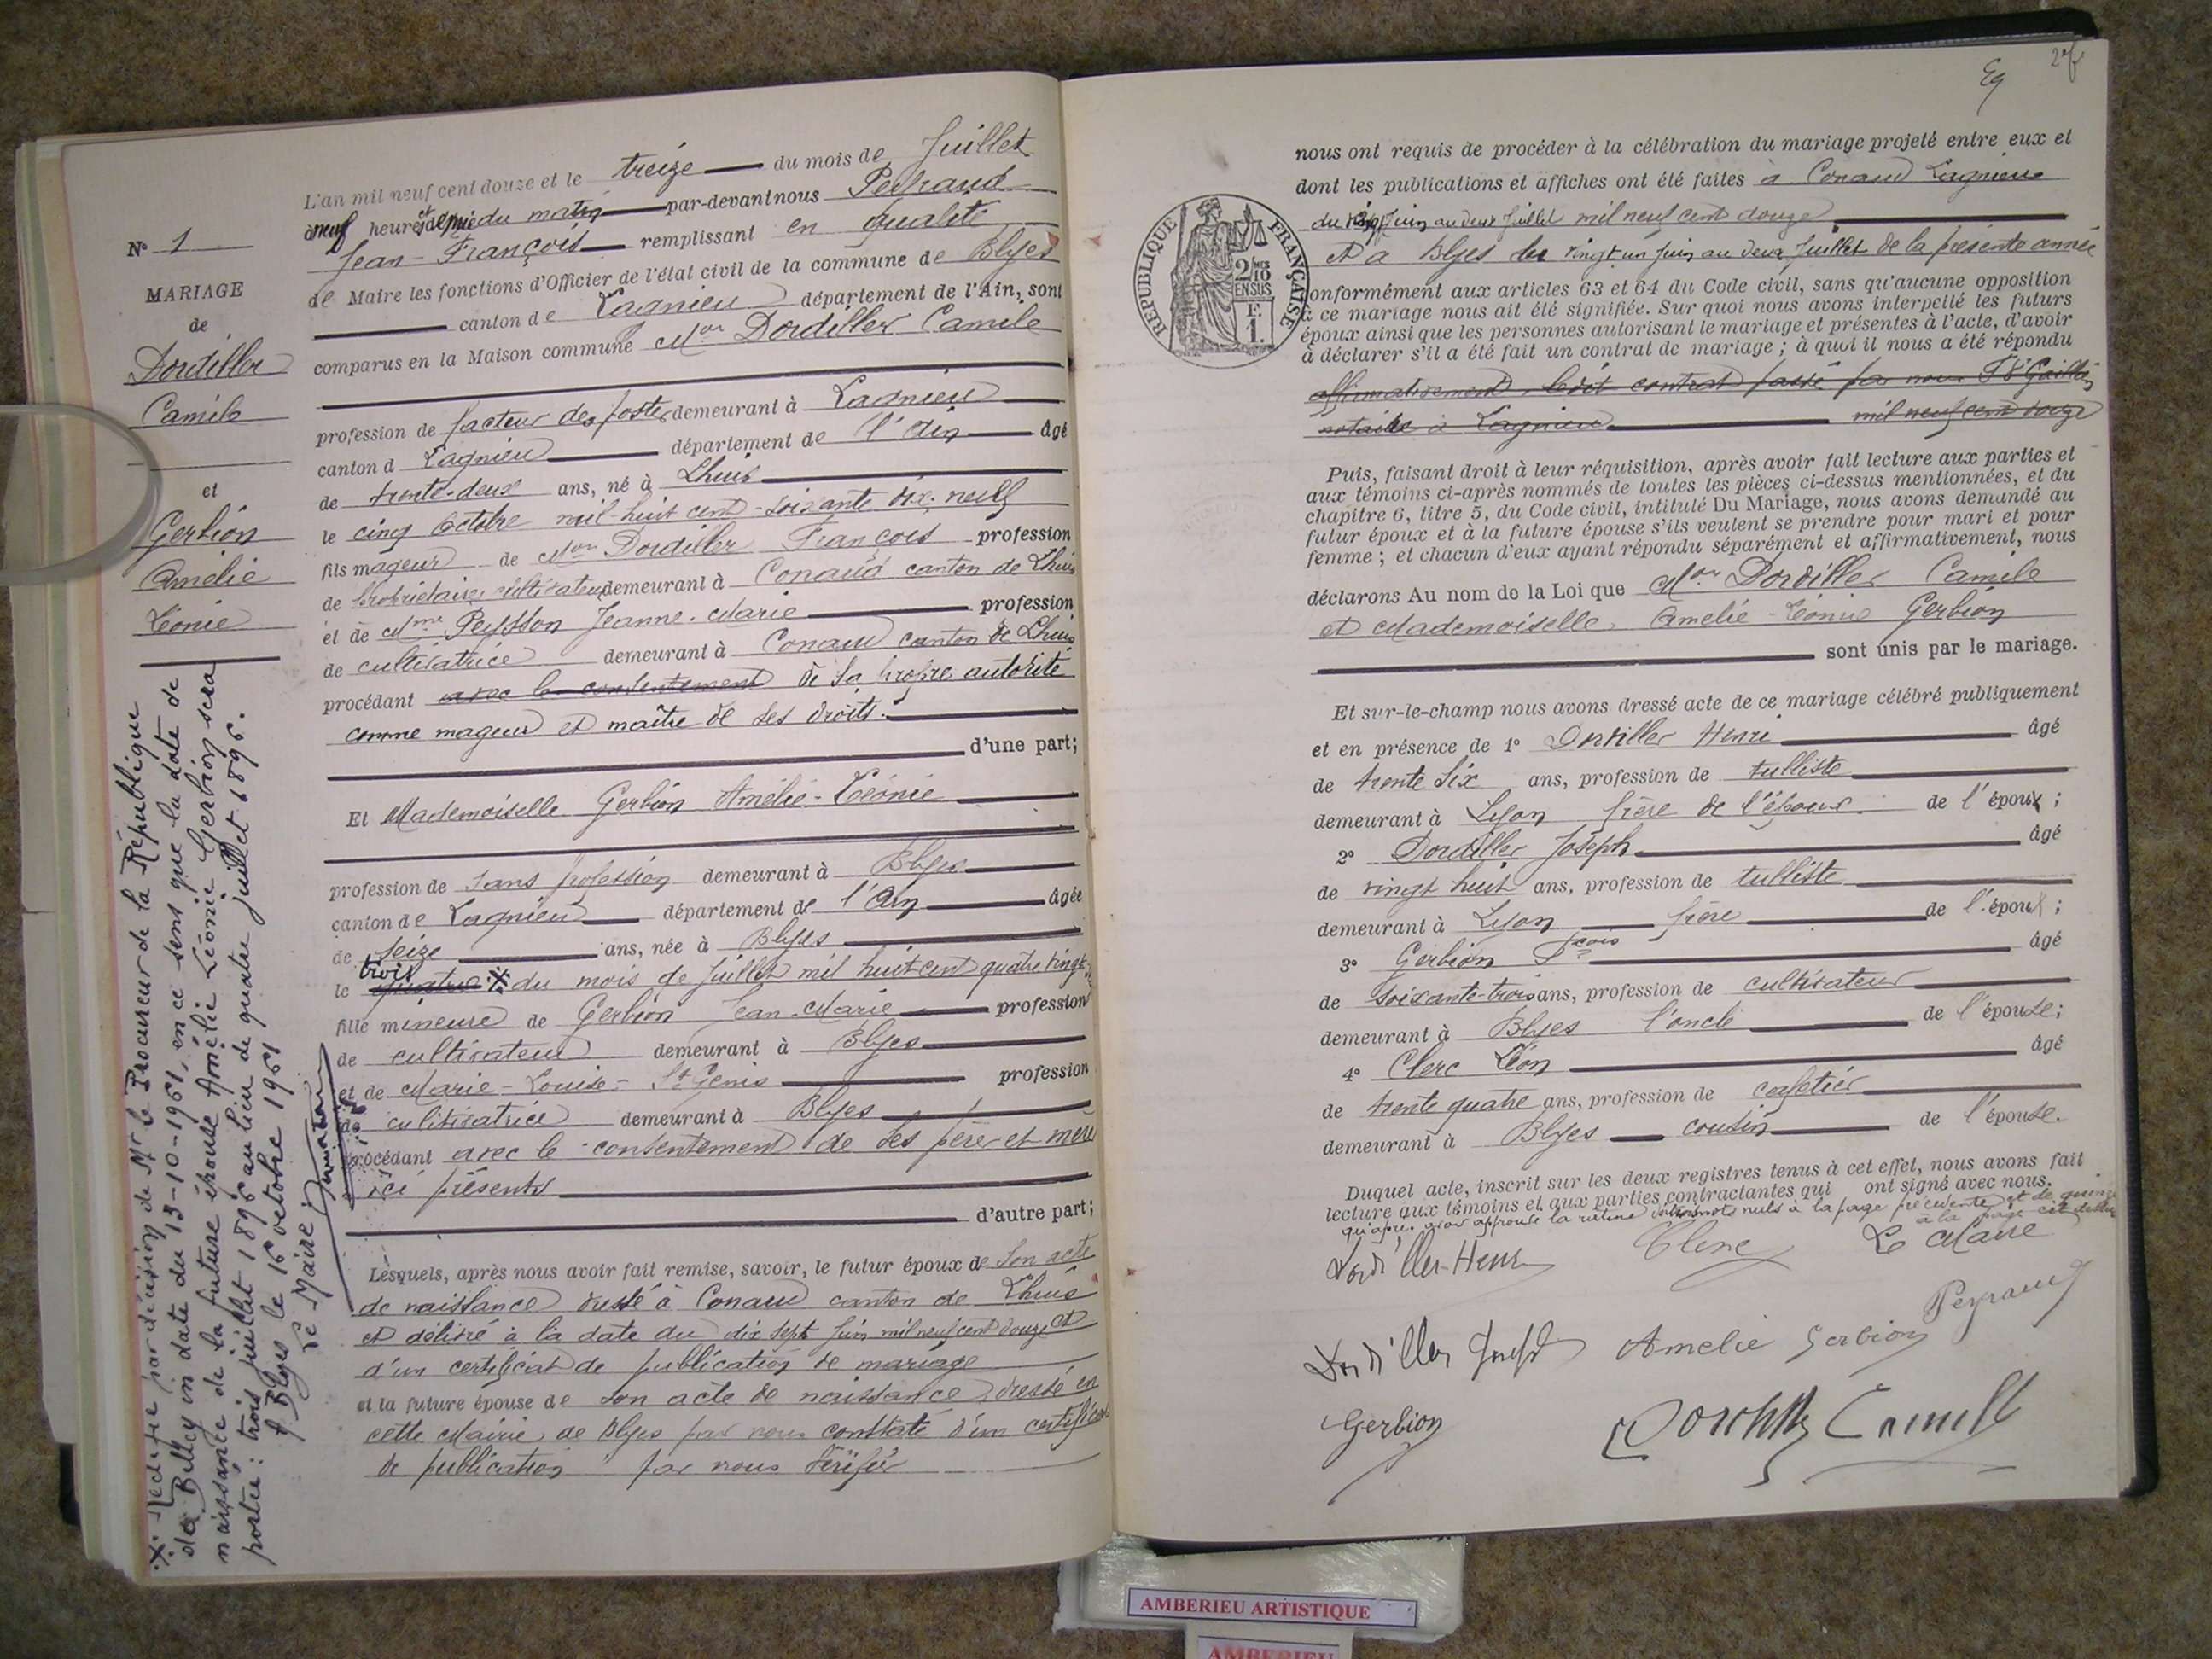 N° 1
MARIAGE
de
Dordiller
Camile
et
Gerbion
Amélie
Léonie
L'an mil neuf cent douze et le treize du mois de Juillet
à neuf heures et demie du matin par-devant nous Peyraud
Jean-François remplissant en qualité
de Maire les fonctions d'Officier de l'état civil de la commune de Blyes
canton de Lagnieu département de l'Ain, sont
comparus en la Maison commune Mon Dordiller Camile
profession de facteur des postes demeurant à Lagnieu
canton d Lagnieu département de l'Ain âgé
de trente-deux ans, né à Lhuis
le cinq octobre mil-huit cent-soixante dix-neuf
fils mageur de Mon Dordiller François profession
de propriétaire cultivateur demeurant à Conand canton de Lhuis
et de Mme Peysson Jeanne-Marie profession
de cultivatrice demeurant à Conand canton de Lhuis
procédant avec le consentement de sa propre autorité
comme mageur et maître de ses droits.
d'une part;
Et Mademoiselle Gerbion Amélie-Léonie
profession de sans profession demeurant à Blyes
canton de Lagnieu département de l'Ain âgée
de seize ans, née à Blyes
le quatre trois X du mois de Juillet mil huit cent quatre vingt
fille mineure de Gerbion Jean-Marie profession
de cultivateur demeurant à Blyes
et de Marie-Louise-St Genis profession
de cultivatrice demeurant à Blyes
procédant avec le consentement de ses père et mère
ici présents
d'autre part;
Lesquels, après nous avoir fait remise, savoir, le futur époux de son acte
de naissance dressé à Conand canton de Lhuis
et délivré à la date du dix sept Juin mil neuf cent douze et
d'un certificat de publication de mariage
et la future épouse de son acte de naissance dressé en
cette Mairie de Blyes par nous constaté d'un certificat
de publication par nous
X. Rectifié par décision de Mr le Procureur de la République
de Belley en date du 13-10-1961, en ce sens que la date de
naissance de la future épouse Amélie Léonie Gerbion sera
portée : trois juillet 1896 au lieu de quatre juillet 1896.
A Blyes le 16 octobre 1961
Le Maire :
nous ont requis de procéder à la célébration du mariage projeté entre eux et
dont les publications et affiches ont été faites à Conand Lagnieu
du Juin au deux Juillet mil neuf cent douze
et à Blyes du vingt un Juin au deux Juillet de la présente année
conformément aux articles 63 et 64 du Code civil, sans qu'aucune opposition
à ce mariage nous ait été signifiée. Sur quoi nous avons interpellé les futurs
époux ainsi que les personnes autorisant le mariage et présentes à l'acte, d'avoir
à déclarer s'il a été fait un contrat de mariage ; à quoi il nous a été répondu
affirmativement ledit contrat passé par nous
notaire à Lagnieu mil neuf cent douze
RÉPUBLIQUE FRANÇAISE
2/10
EN SUS
1 F.
Puis, faisant droit à leur réquisition, après avoir fait lecture aux parties et
aux témoins ci-après nommés de toutes les pièces ci-dessus mentionnées, et du
chapitre 6, titre 5, du Code civil, intitulé Du Mariage, nous avons demandé au
futur époux et à la future épouse s'ils veulent se prendre pour mari et pour
femme ; et chacun d'eux ayant répondu séparément et affirmativement, nous
déclarons Au nom de la Loi que Mon Dordiller Camile
et Mademoiselle Amelie-Léonie Gerbion
sont unis par le mariage.
Et sur-le-champ nous avons dressé acte de ce mariage célébré publiquement
et en présence de 1° Dordiller Henri âgé
de trente six ans, profession de tulliste
demeurant à Lyon frère de l'époux de l'époux ;
2° Dordiller Joseph âgé
de vingt huit ans, profession de tulliste
demeurant à Lyon frère de l'époux ;
3° Gerbion Fçois âgé
de soixante-trois ans, profession de cultivateur
demeurant à Blyes l'oncle de l'épouse ;
4° Clerc Léon âgé
de trente quatre ans, profession de cafetier
demeurant à Blyes cousin de l'épouse.
Duquel acte, inscrit sur les deux registres tenus à cet effet, nous avons fait
lecture aux témoins et aux parties contractantes qui ont signé avec nous.
qu'après avoir approuvé la rature mots nuls à la page précédente et de quinze
à la page
Dordiller Henri Clerc Le Maire
Peyraud
Dordiller Joseph Amelie Gerbion
Gerbion Dordiller Camille
AMBERIEU ARTISTIQUE
AMBERIEU